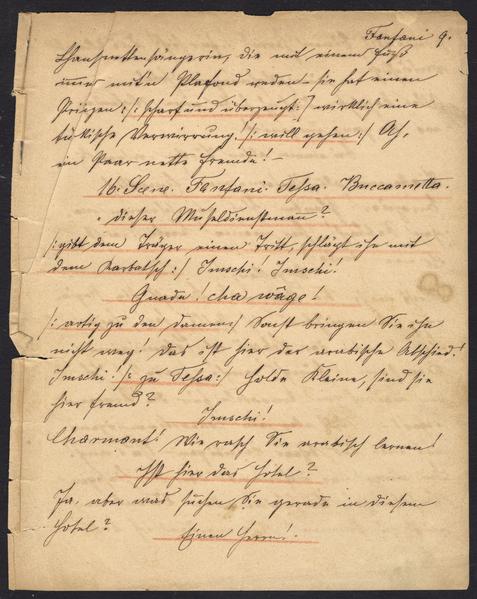 Fanfani 9.
Chansonettensängerin, die mit einem Fuß
immer mit'n Plafond reden – sie hat einen
Prinzen /: scharf und überzeugt :/ wirklich eine
türkische Verwirrung. /: will gehen :/ Ah,
ein Paar nette Fremde! –
16. Scene. Fanfani. Tessa. Buccametta.
dieser Museldienstmann?
/: gibt dem Träger einen Tritt, schlägt ihn mit
dem Karbatsch :/ Imschi! Imschi!
Gnade! cha wäge!
/: artig zu den Damen :/ Sonst bringen Sie ihn
nicht weg! Das ist hier der arabische Abschied.!
Imschi! /: zu Tessa :/ Holde Kleine, sind sie
hier fremd?
Imschi!
Charmant! Wie rasch Sie arabisch lernen!
Ist hier das Hotel?
Ja, aber was suchen Sie gerade in diesem
Hotel?
Einen Herrn!